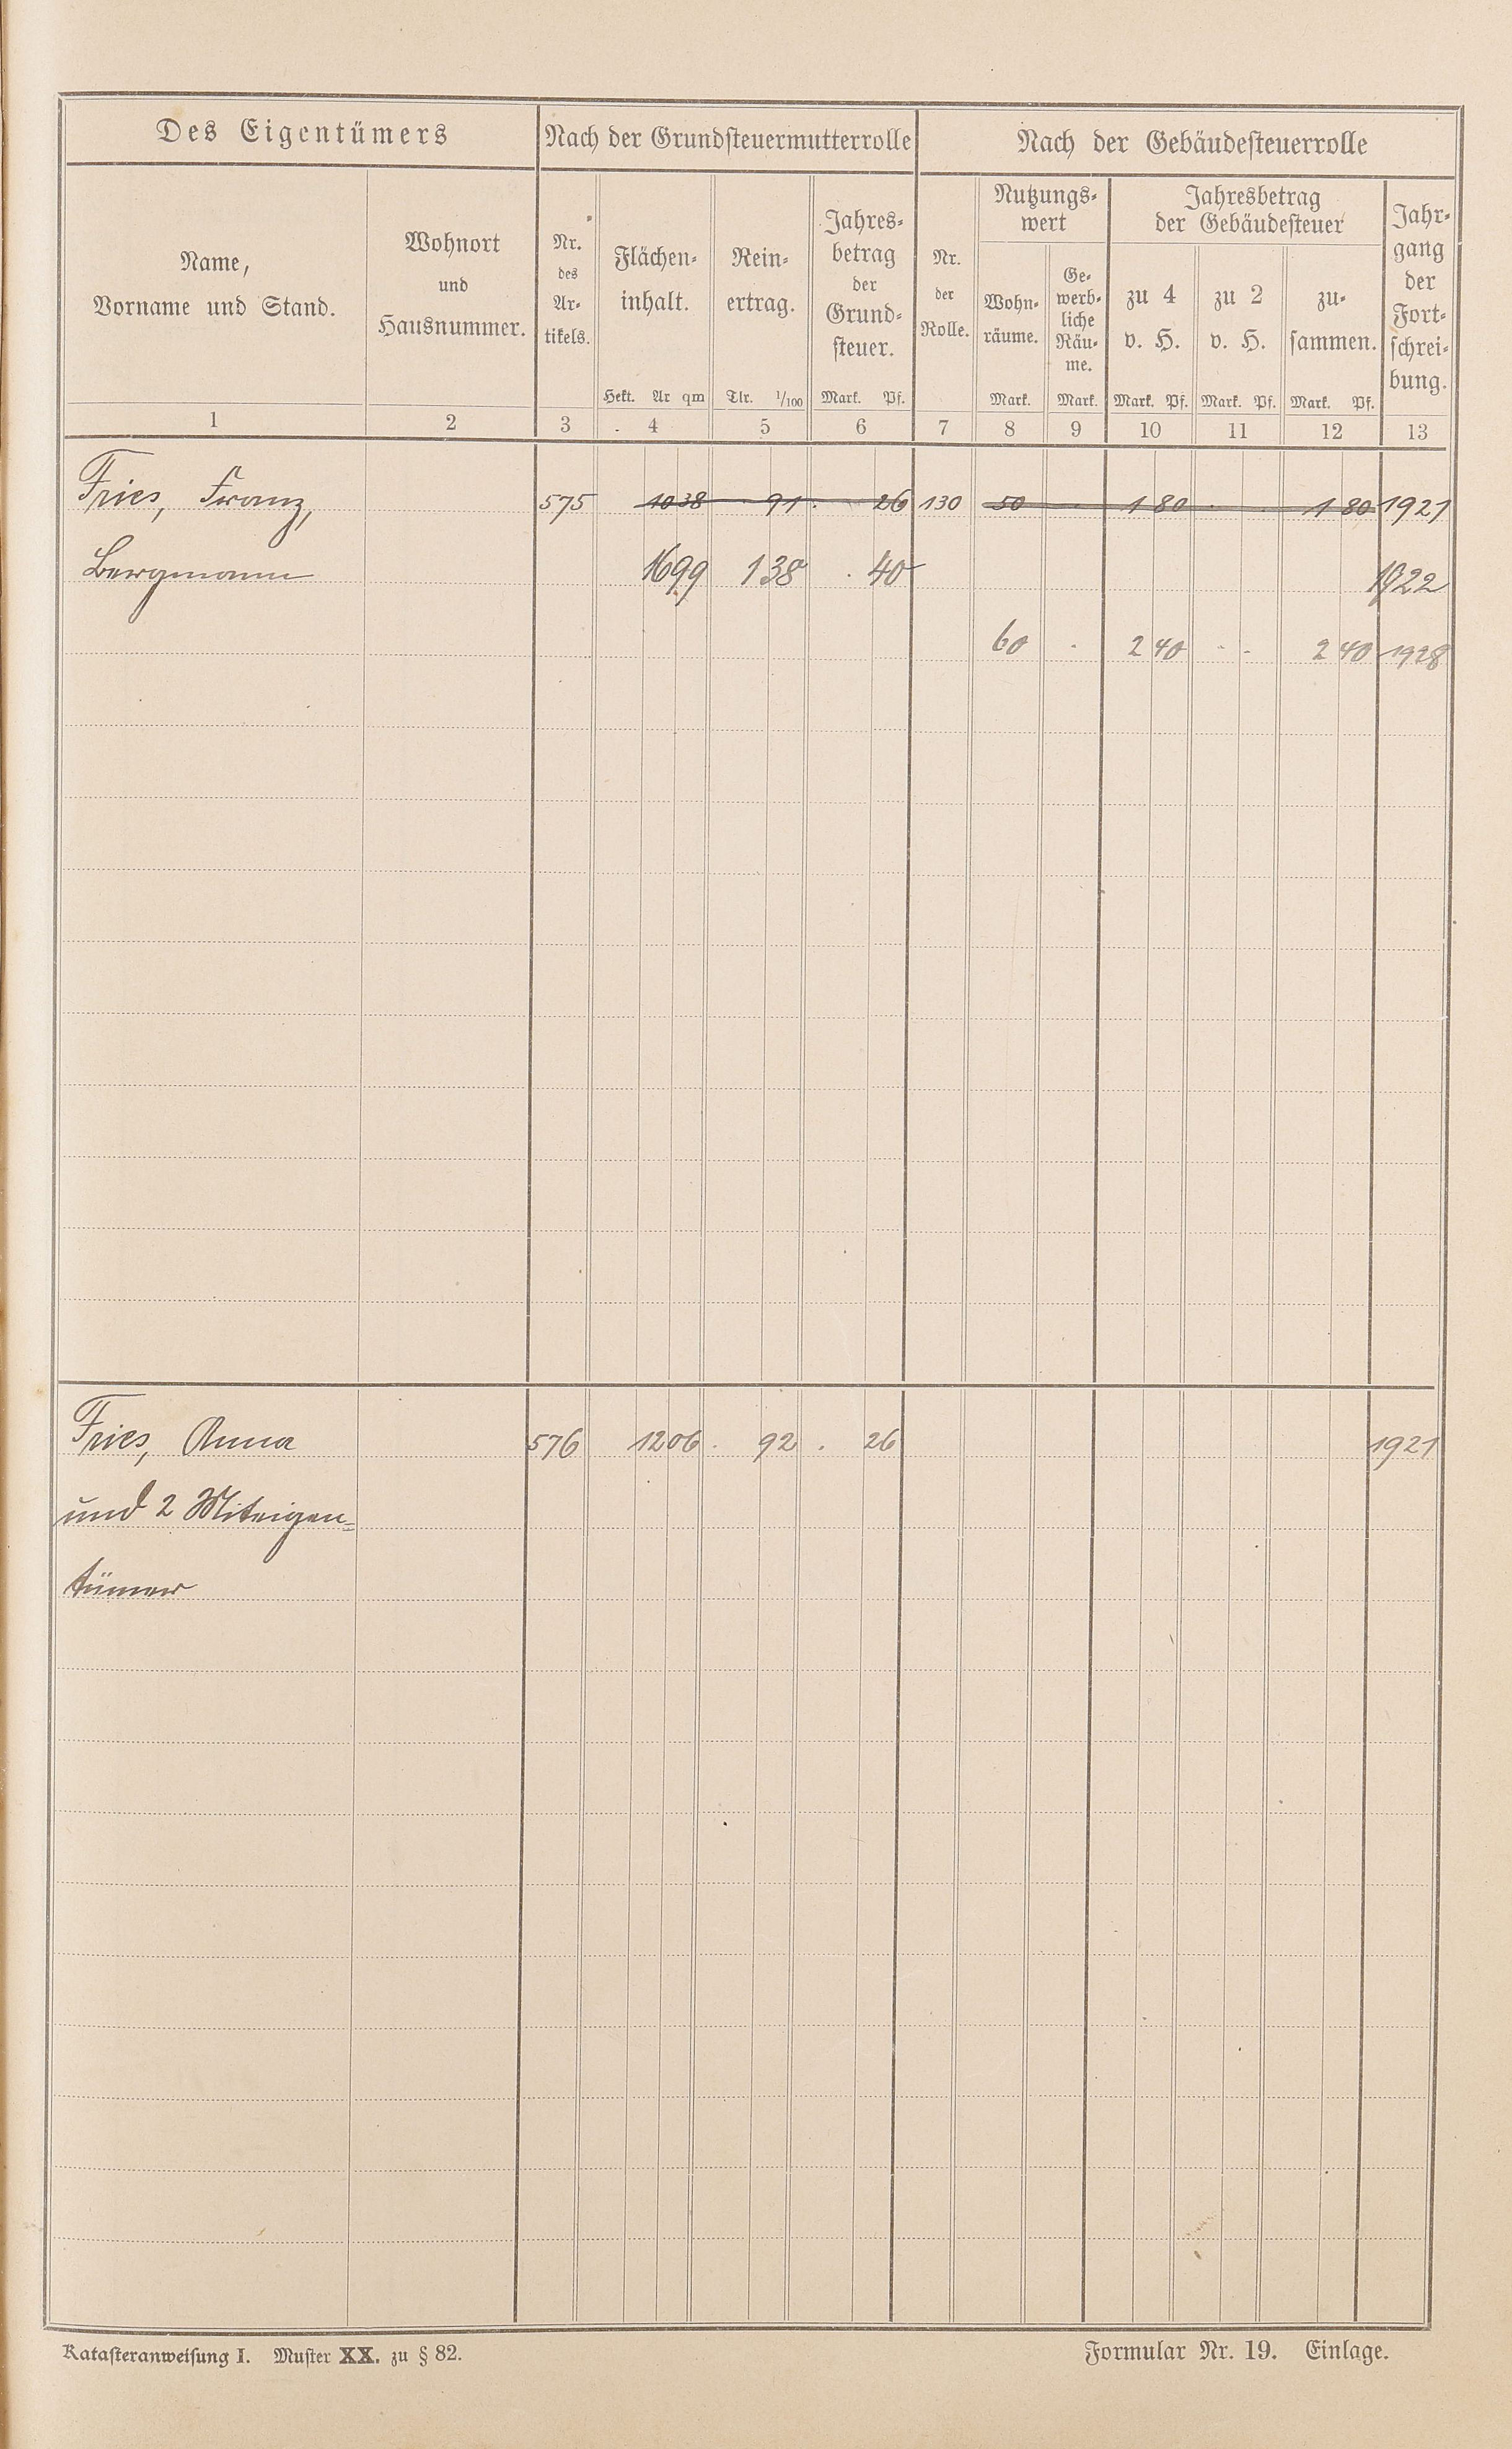 Des Eigentümers
Nach der Grundsteuermutterrolle
Nach der Gebäudesteuerrolle
Name,
Vorname und Stand.
Wohnort
und
Hausnummer.
Nr.
des
Ar-
tikels.
Flächen-
inhalt.
Hekt. Ar qm
Rein-
ertrag.
Tlr. 1/100
Jahres-
betrag
der
Grund-
steuer.
Mark. Pf.
Nr.
der
Rolle.
Nutzungs-
wert
Wohn-
räume.
Mark.
Ge-
werb-
liche
Räu-
me.
Mark.
Jahresbetrag
der Gebäudesteuer
zu 4
v. H.
Mark. Pf.
zu 2
v. H.
Mark. Pf.
zu-
sammen.
Mark. Pf.
Jahr-
gang
der
Fort-
schrei-
bung.
1 2 3 4 5 6 7 8 9 10 11 12 13
Fries, Franz, 575 10 38 · 91 · 26 130 50 · 1 80 · · 1 80 1921
Bergmann 16 99 1 38 · 40 1922
60 · 2 40 · - 2 40 1928
Fries, Anna 576 12 06 · 92 · 26 1921
und 2 Miteigen=
tümer
Katasteranweisung I. Muster XX. zu § 82.
Formular Nr. 19. Einlage.